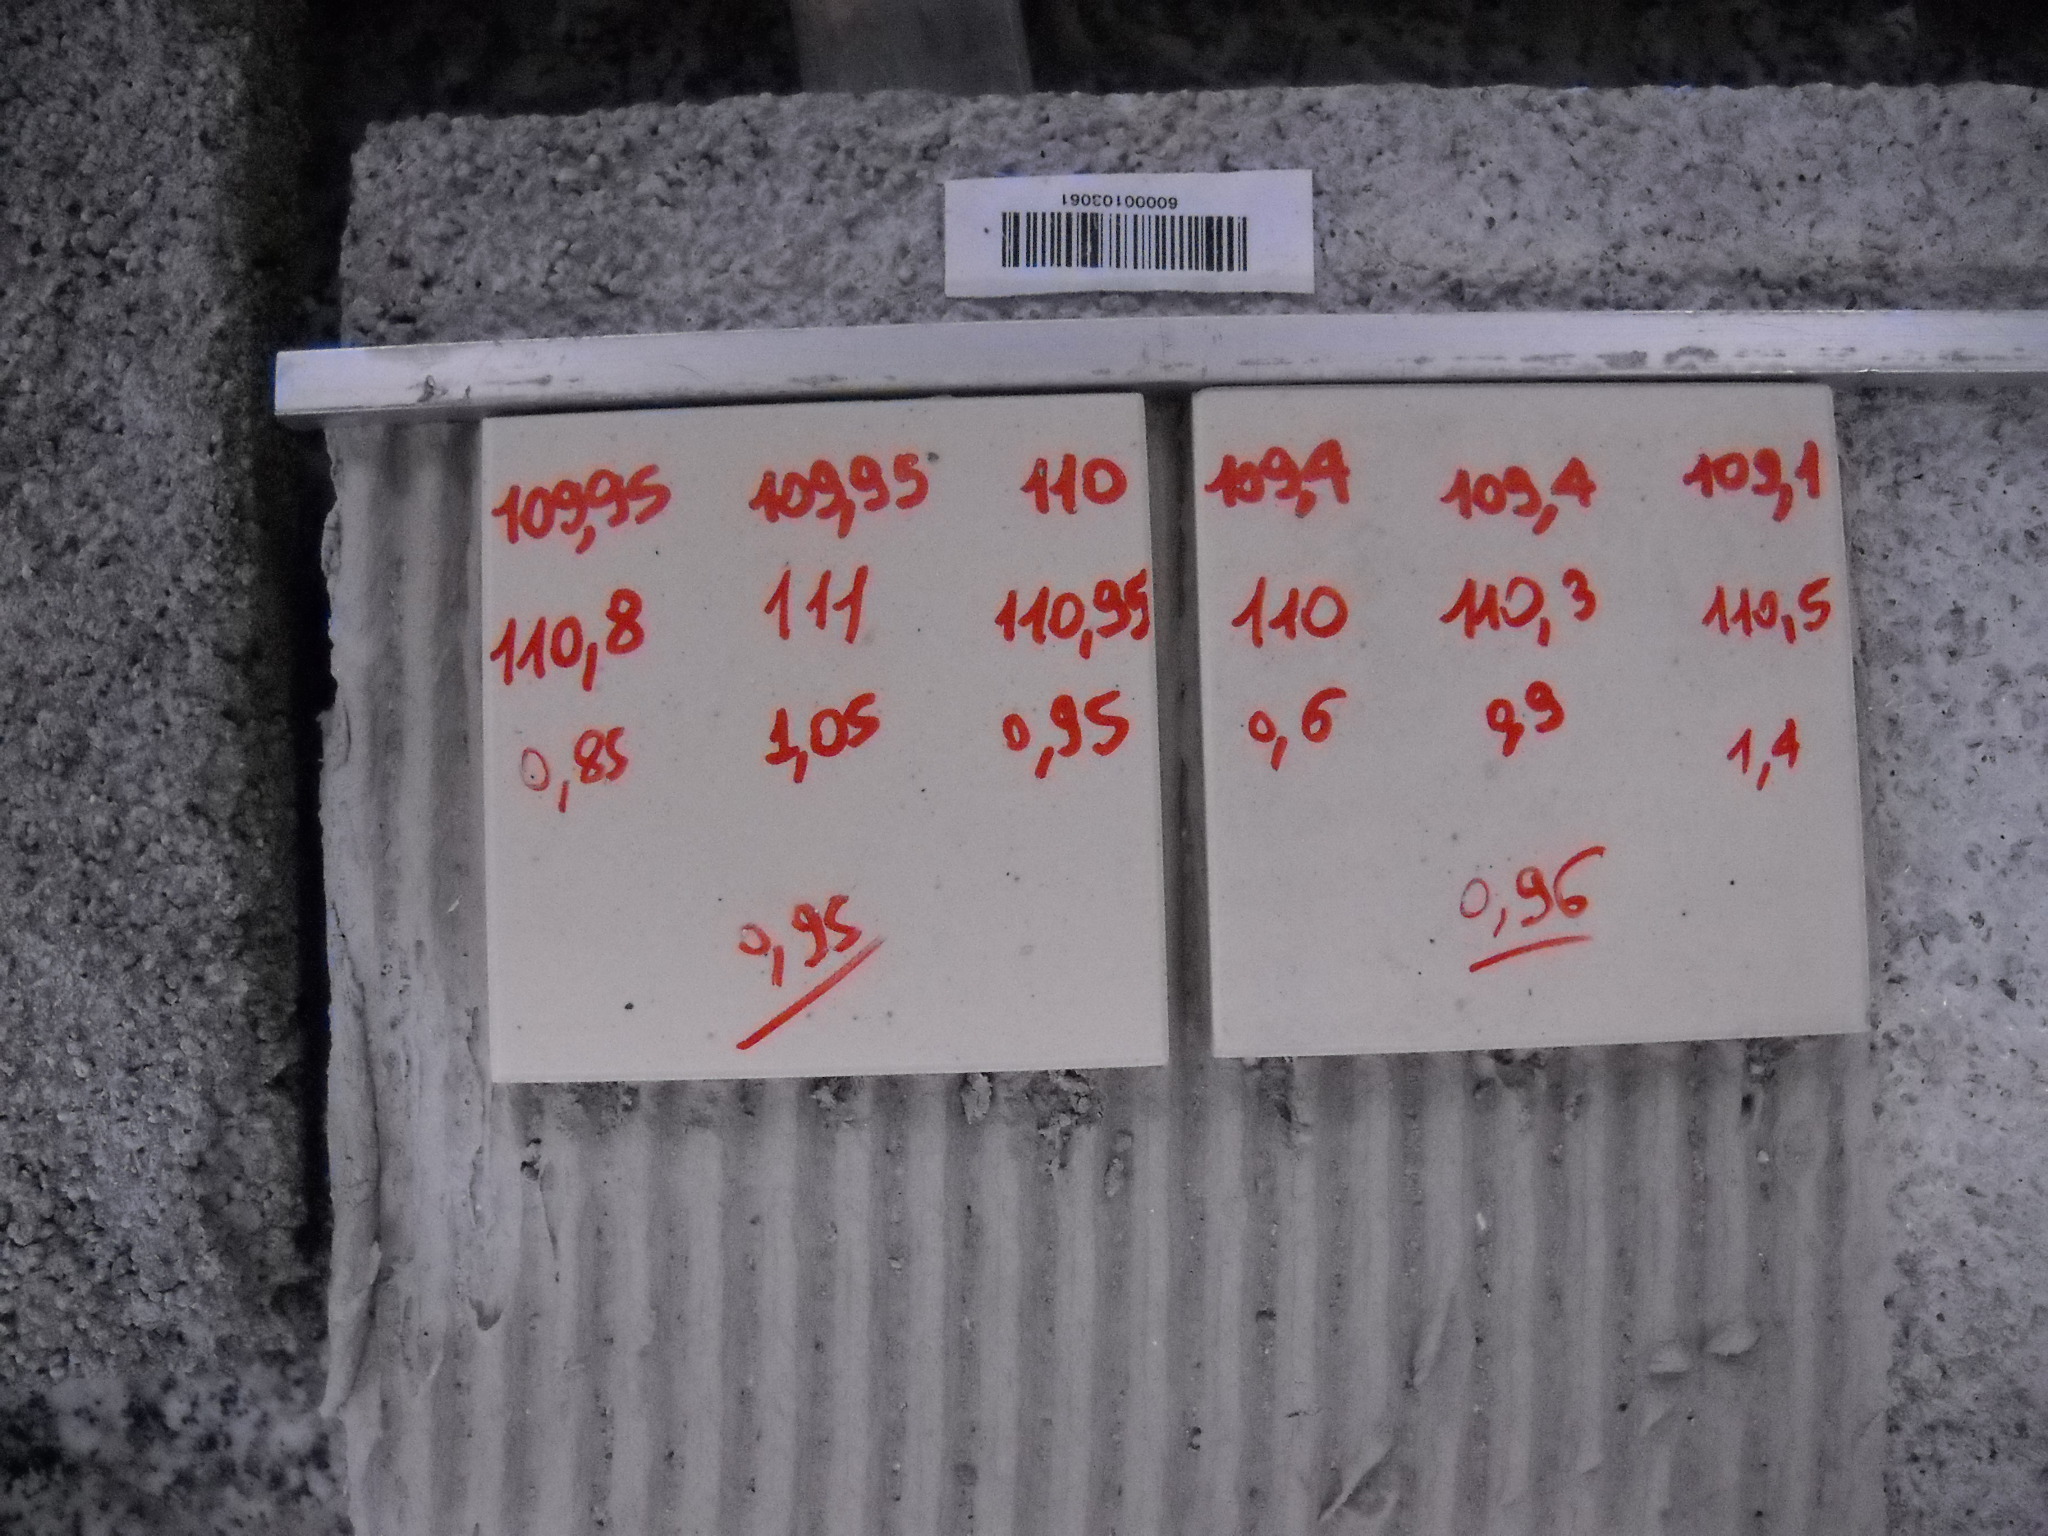 60000103061
109,95 109,95 110
110,8 111 110,95
0,85 1,05 0,95
0,95
109,4 109,4 109,1
110 110,3 110,5
0,6 0,9 1,4
0,96